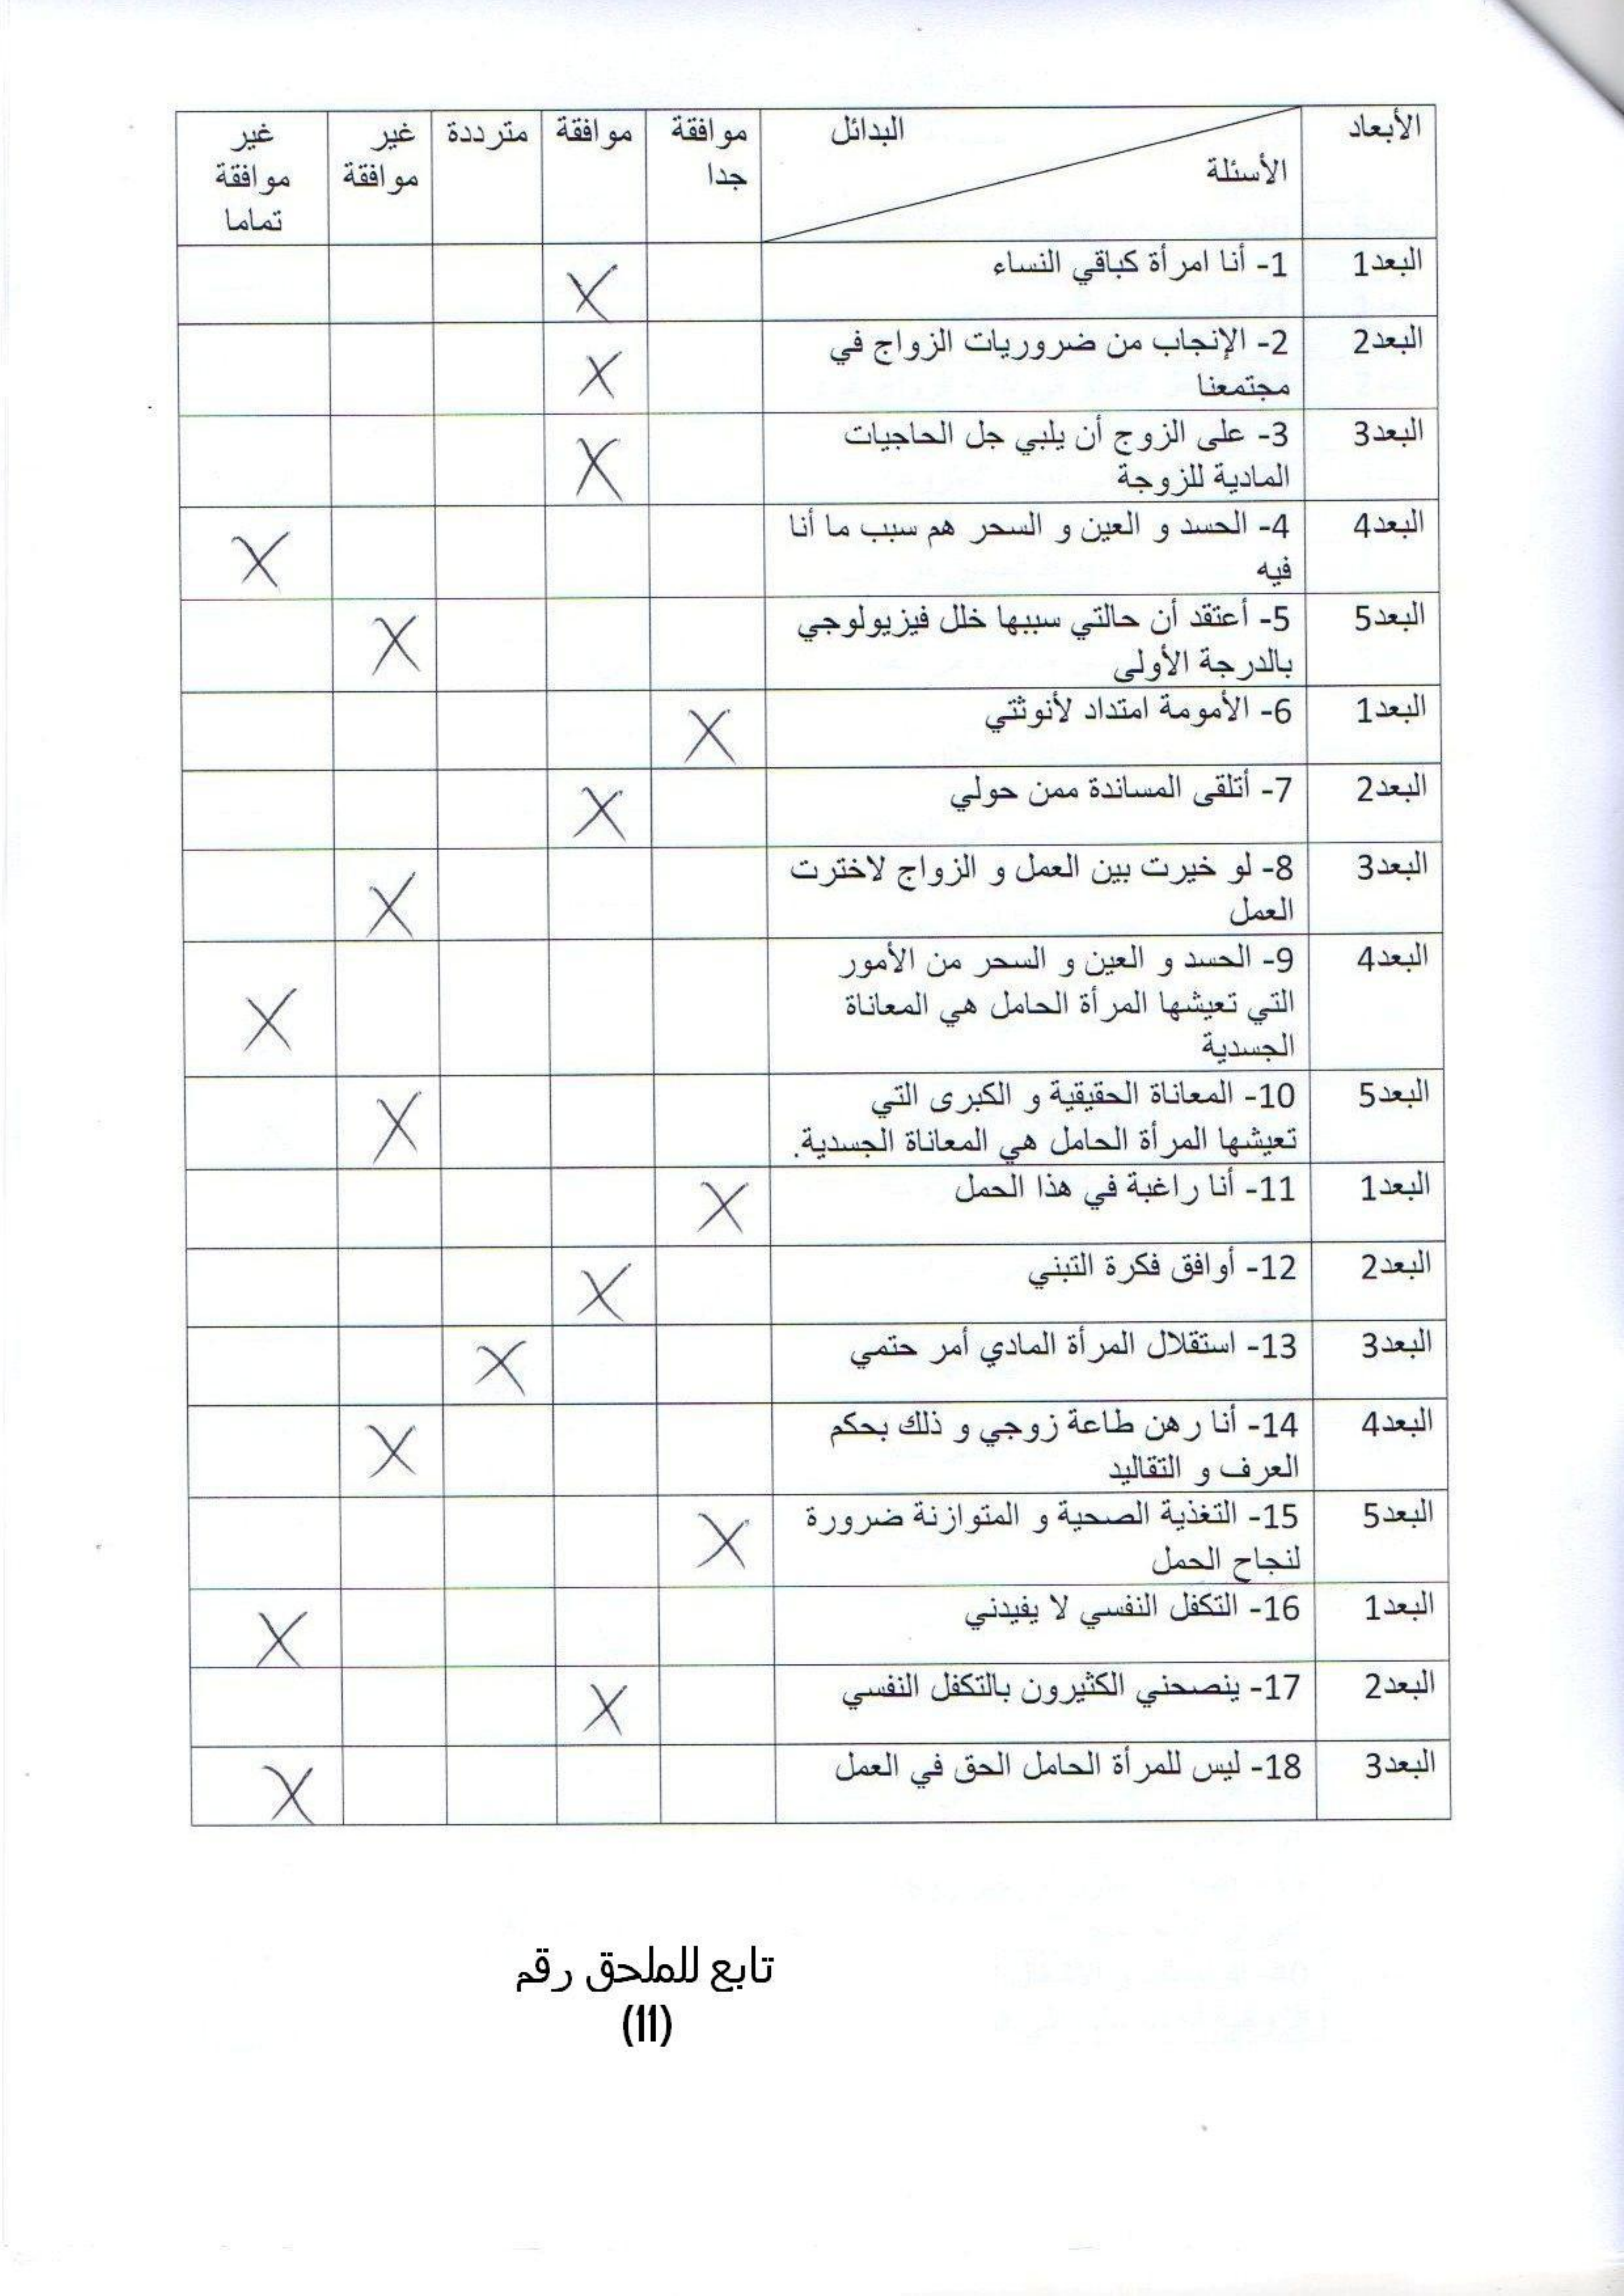 الأبعاد البدائل موافقة موافقة مترددة غير غير
الأسئلة جدا موافقة موافقة
تماما
البعد1 1- أنا امرأة كباقي النساء X
البعد2 2- الإنجاب من ضروريات الزواج في X
مجتمعنا
البعد3 3- على الزوج أن يلبي جل الحاجيات X
المادية للزوجة
البعد4 4- الحسد و العين و السحر هم سبب ما أنا X
فيه
البعد5 5- أعتقد أن حالتي سببها خلل فيزيولوجي X
بالدرجة الأولى
البعد1 6- الأمومة امتداد لأنوثتي X
البعد2 7- أتلقى المساندة ممن حولي X
البعد3 8- لو خيرت بين العمل و الزواج لاخترت X
العمل
البعد4 9- الحسد و العين و السحر من الأمور
التي تعيشها المرأة الحامل هي المعاناة X
الجسدية
البعد5 10- المعاناة الحقيقية و الكبرى التي X
تعيشها المرأة الحامل هي المعاناة الجسدية.
البعد1 11- أنا راغبة في هذا الحمل X
البعد2 12- أوافق فكرة التبني X
البعد3 13- استقلال المرأة المادي أمر حتمي X
البعد4 14- أنا رهن طاعة زوجي و ذلك بحكم X
العرف و التقاليد
البعد5 15- التغذية الصحية و المتوازنة ضرورة X
لنجاح الحمل
البعد1 16- التكفل النفسي لا يفيدني X
البعد2 17- ينصحني الكثيرون بالتكفل النفسي X
البعد3 18- ليس للمرأة الحامل الحق في العمل X
تابع للملحق رقم
(11)